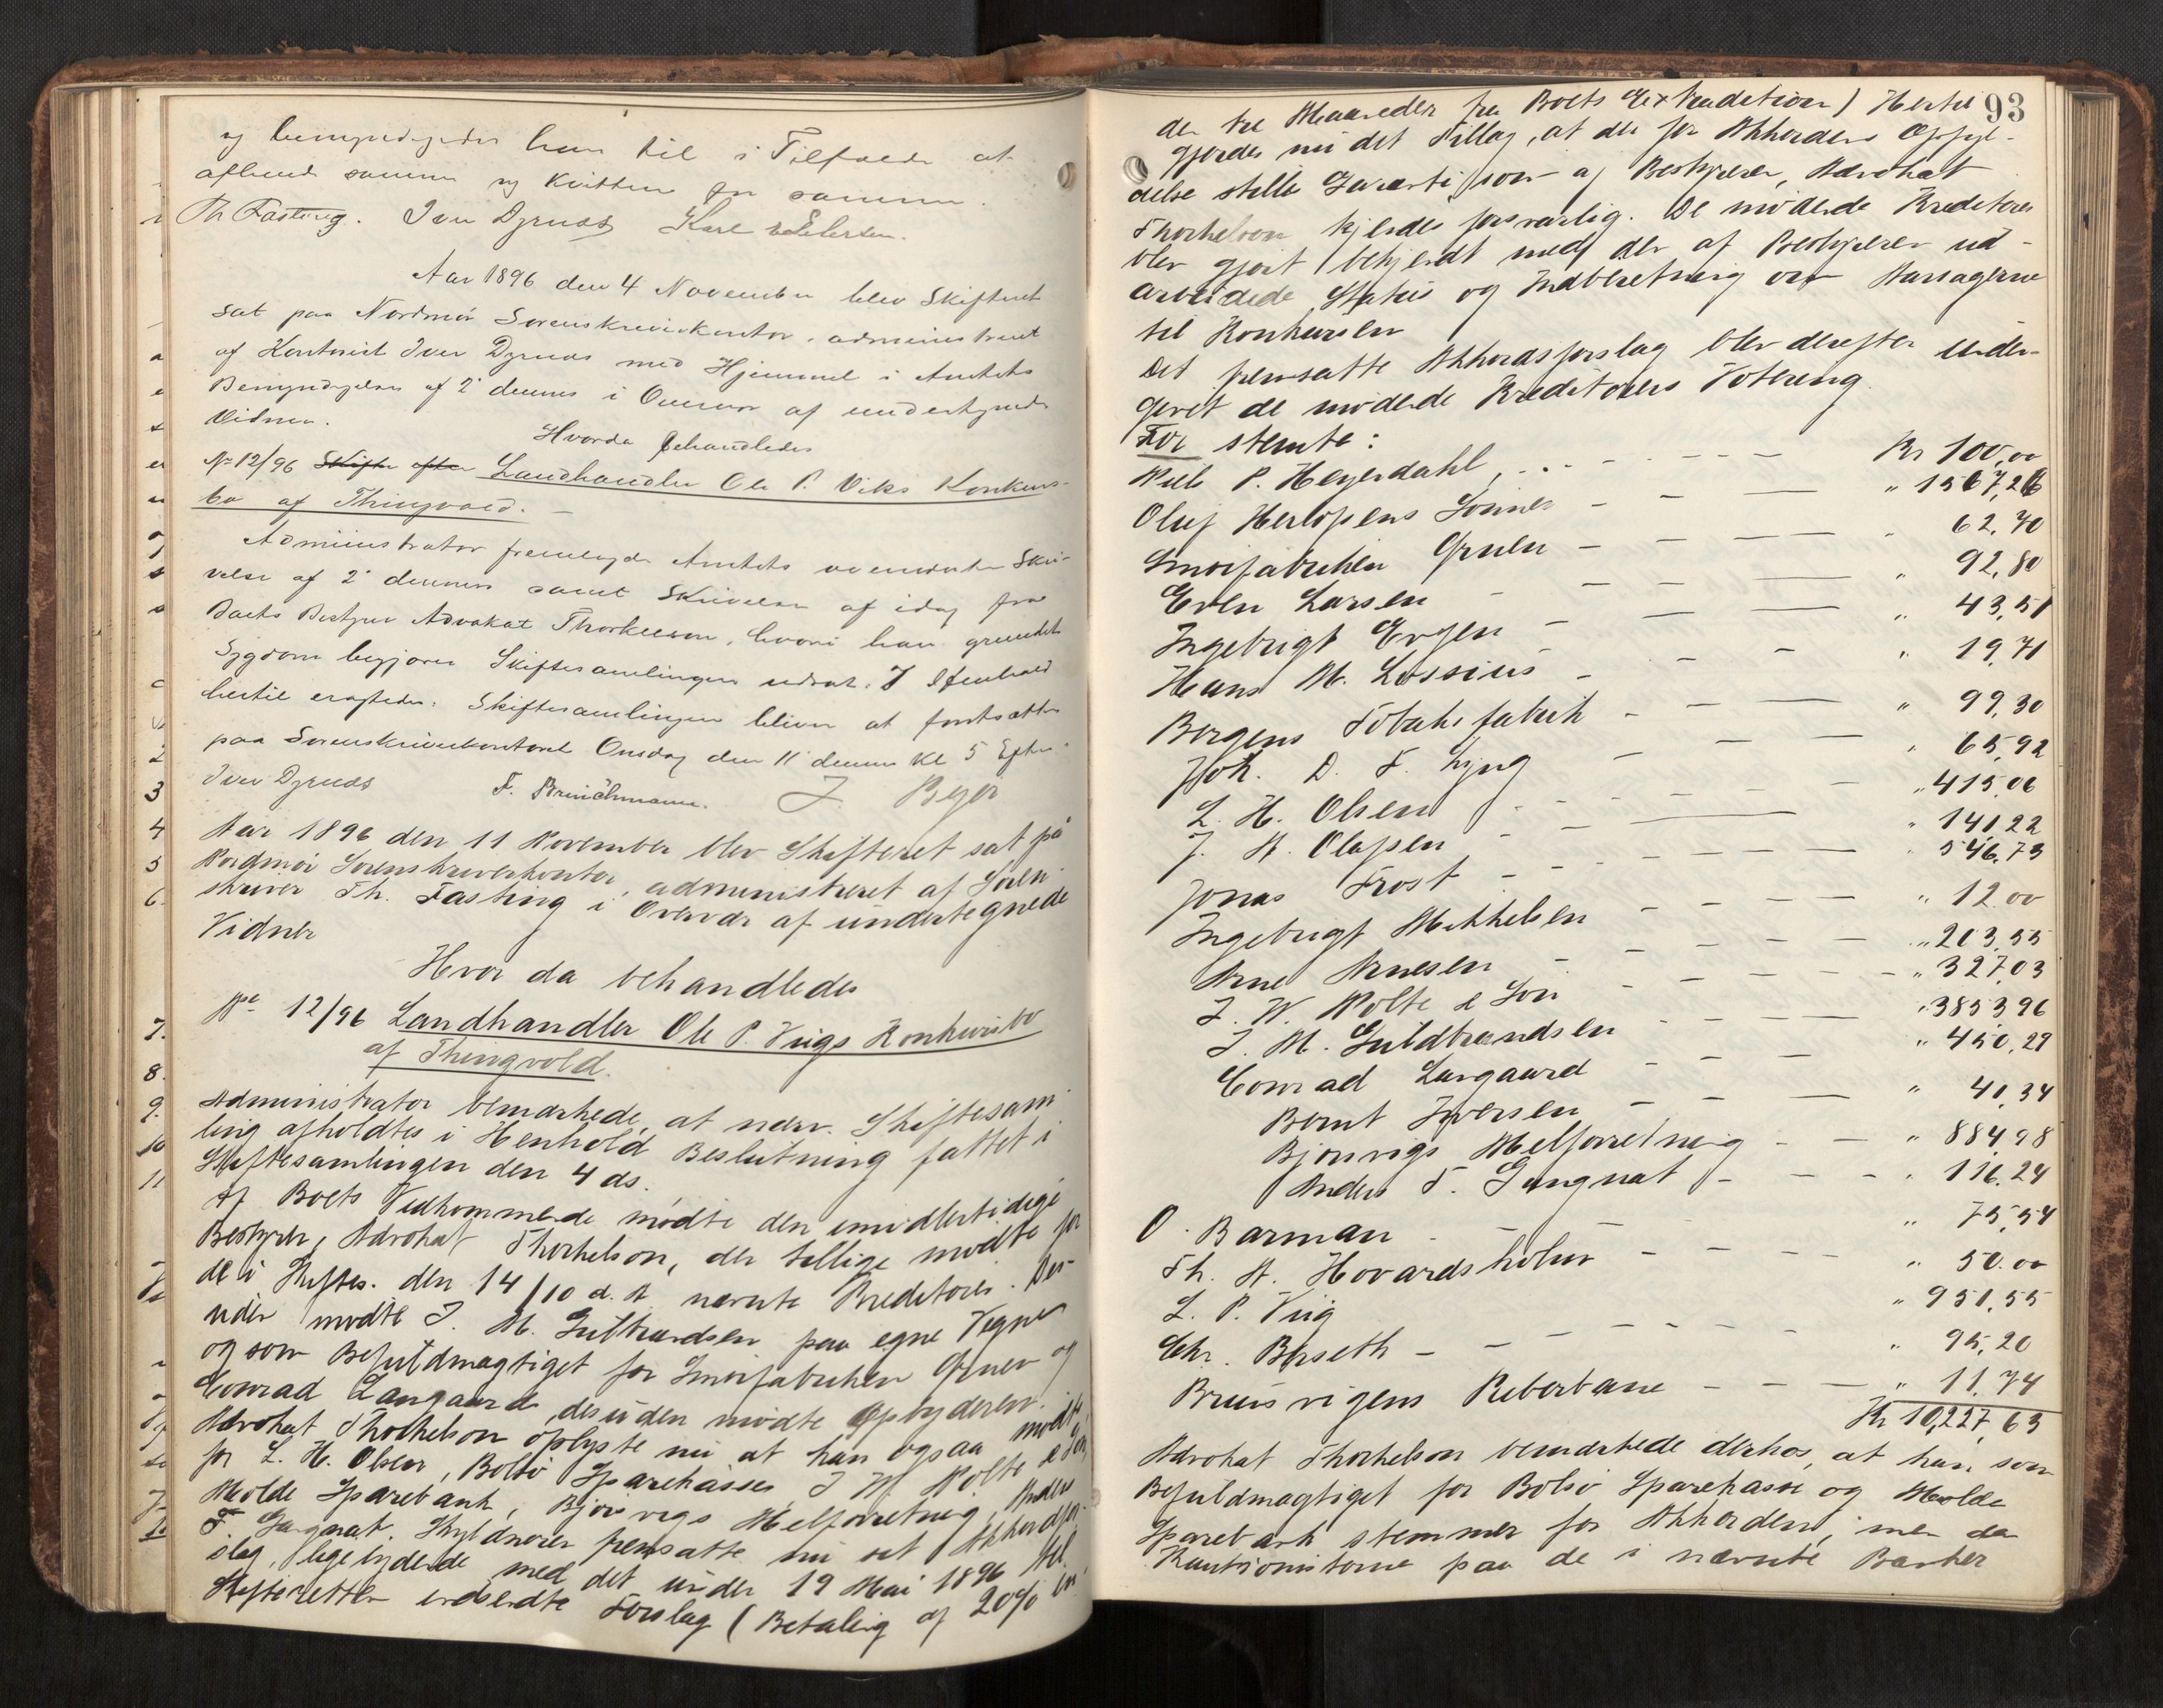 og bemyndigedes han til i Tilfælde at
afhænde samme og kvittere for samme.
Th Fasting. Iver Dyrnas Karl Eilertsen.
Aar 1896 den 4 November blev Skifteret
sat paa Nordmør Sorenskriverkontor, administreret
af Kontorist Iver Dyrnas med Hjemmel i Amtets
Bemyndigelse af 2 dennes i Overvær af undertegnede
Vidner.
Hvorda behandledes
No 12/96 Skifte efter Landhandler Ole P. Viks Konkurs-
bo af Thingvold.
Administrator fremlagde Amtets ovennævnte Skri-
velse af 2 dennes samt Skrivelse af idag fra
Boets Bestyrer Advokat Thorkelson, hvori han grundet
Sygdom begjærer Skiftesamlingen udsat. I Henhold
hertil eragtedes: Skiftesamlingen bliver at fortsætte
paa Sorenskriverkontoret Onsdag den 11 dennes Kl 5 Efterm.
Iver Dyrnas F. Brinchmann. J. Beyer
Aar 1896 den 11 November blev Skifteret sat på
Nordmør Sorenskriverkontor, administreret af Soren-
skriver Th. Fasting i Overvær af undertegnede
Vidner
Hvor da behandledes
No 12/96 Landhandler Ole P. Viigs Konkursbo
af Thingvold.
Administrator bemærkede, at nærv. Skiftesam
ling afholdtes i Henhold Beslutning fattet i
Skiftesamlingen den 4 ds.
Af Boets Vedkommende mødte den imidlertidige
Bestyrer, Advokat Thorkelson, der tillige mødte for
de i Skiftes. den 14/10 d. A nævnte Kreditorer. Des-
uden mødte J. M. Guldbrandsen paa egne Vegne
og som Befuldmægtiget for Smørfabriken Gruen og
Conrad Langaard, desuden mødte Opbyderen.
Advokat Thorkelson oplyste nu at han ogsaa mødte
for L. H. Olsen, Bolsø Sparekasse, J W Nolte & Søn,
Molde Sparebank, Bjørvigs Melforretning, Anders
F. Gangnat. Skyldneren fremsatte nu sit Akkordfor-
slag, ligelydende med det under 19 Mai 1896 til
Skifteretten indsendte Forslag (Betaling af 20% in-
93
den tre Maaneder fra Boets Extradition) Hertil
gjordes nu det Tillæg, at der for Akkordens Opfyl-
delse stilles Garanti som af Bestyreren, Advokat
Thorkelson kjendes forsvarlig. De mødende Kreditorer
blev gjort bekjendt med den af Bestyreren ud-
arbeidede Status og Indberetning om Aarsagerne
til Konkursen
Det fremsatte Akkordsforslag blev derefter under-
givet de mødende Kreditorers Votering
For stemte:
Niels P. Heyerdahl, Kr 100,00
Oluf Herlofsens Sønner " 1567,26
Smørfabriken Gruen " 62,70
Even Larsen " 92,80
Ingebrigt Ersen " 43,51
Hans M. Lossius " 19,71
Bergens Tobaksfabrik " 99,30
Joh. D. F. Lyng " 65,92
L. H. Olsen " 415,06
J. A. Olafsen " 141,22
Jonas Frost " 546,73
Ingebrigt Mikkelsen " 12.00
Arne Arnesen " 203,55
J. W. Nolte & Søn " 327,03
J. M. Guldbrandsen " 3853,96
Conrad Langaard " 450,29
Bernt Iversen " 41,34
Bjørvigs Melforretning " 884,98
Anders F. Gangnat " 116.24
O. Barman " 75,54
Th. A. Hovardsholm " 50.00
L. P. Viig " 951,55
Chr. Bʉseth " 95,20
Bruunsvigens Reberbane " 11,74
Kr 10,227,63
Advokat Thorkelson bemærkede derhos, at han som
Befuldmægtiget for Bolsø Sparekasse og Molde
Sparebank stemmer for Akkorden; men da
Kautionisterne paa de i nævnte Banker